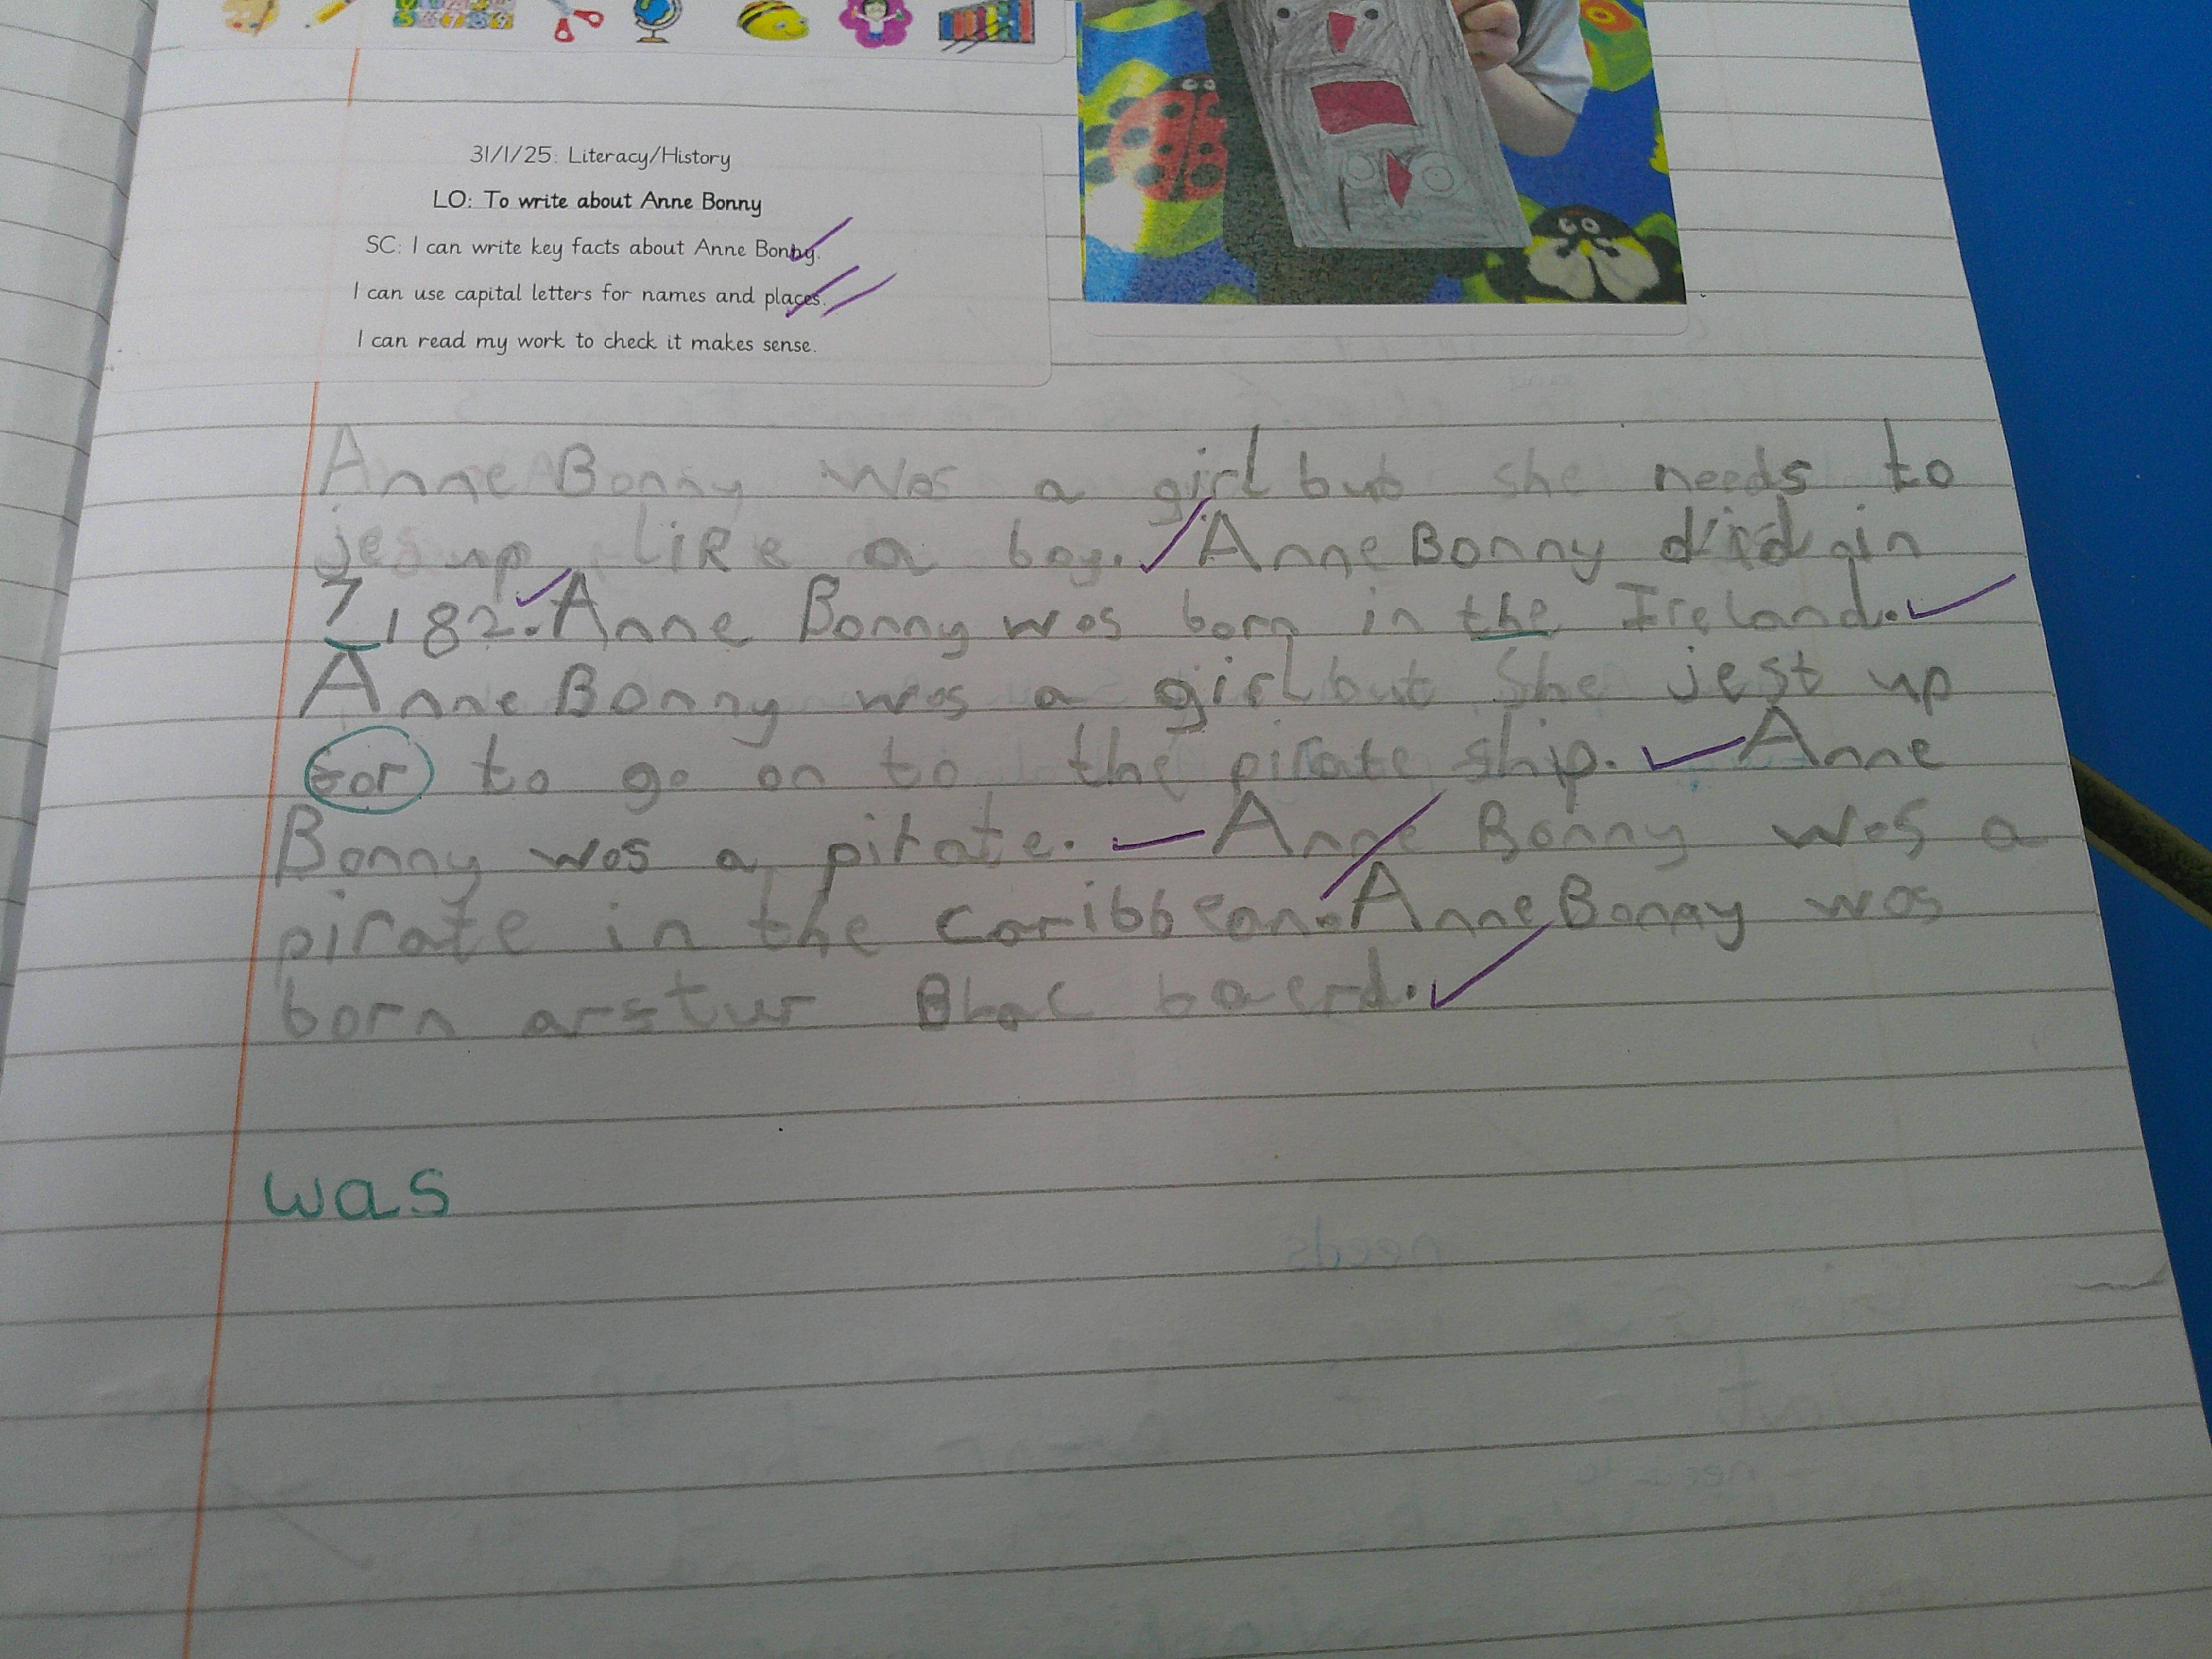 31/1/25: Literacy/History
LO: To write about Anne Bonny
SC: I can write key facts about Anne Bonny.
I can use capital letters for names and places.
I can read my work to check it makes sense.
Anne Bonny was a girl but she needs to
jes up like a boy. Anne Bonny did in
7182. Anne Bonny was born in the Ireland.
Anne Bonny was a girl but She jest up
for to go on to the pirate ship. Anne
Bonny was a pirate. Anne Bonny was a
pirate in the caribbean. Anne Bonny was
born arstur Blac baerd.
was